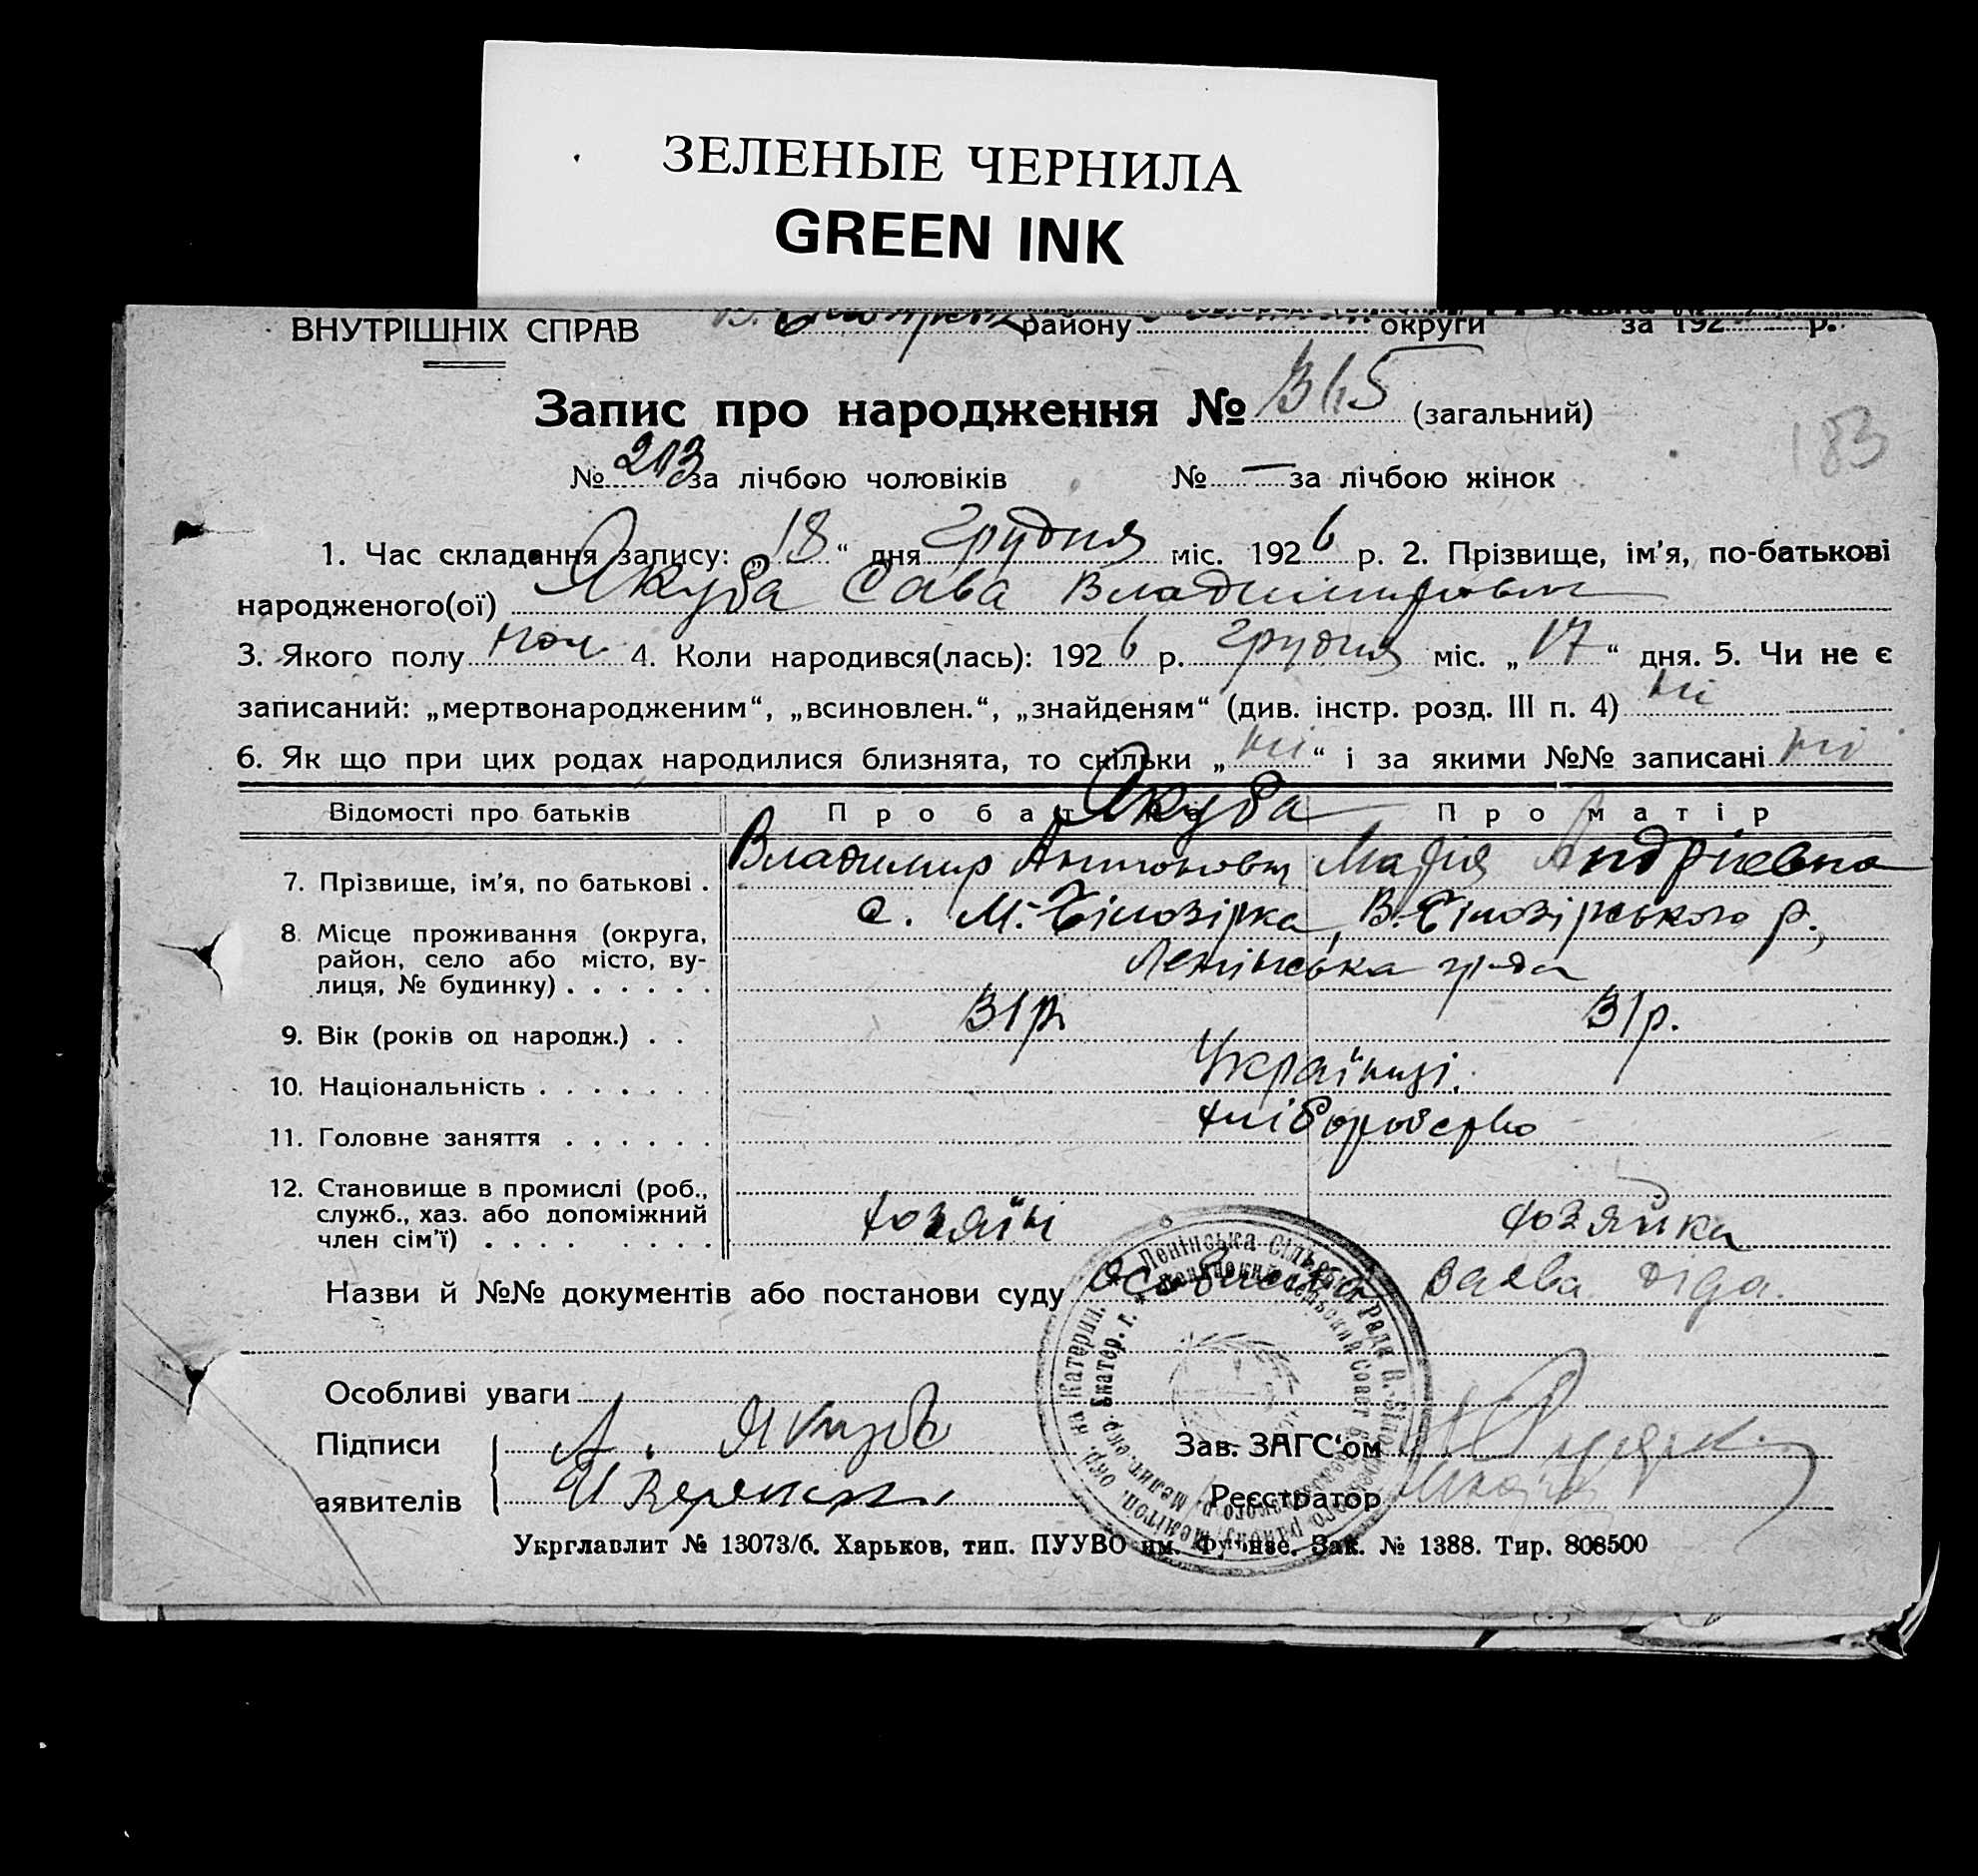 ЗЕЛЕНЫЕ ЧЕРНИЛА
GREEN INK
ВНУТРІШНІХ СПРАВ району округи за 192 р.
Запис про народження № (загальний)
183
№ 203 за лічбою чоловіків № — за лічбою жінок
1. Час складання запису: „18“ дня Грудня міс. 1926 р. 2. Прізвище, ім’я, по-батькові
народженого(ої) Якуба Сава Владимирович
3. Якого полу чол 4. Коли народився(лась): 1926 р. грудня міс. „17“ дня. 5. Чи не є
записаний: „мертвонародженим“, „всиновлен.“, „знайденям“ (див. інстр. розд. III п. 4) ні
6. Як що при цих родах народилися близнята, то скільки „ні“ і за якими №№ записані ні
Відомості про батьків Про батька Про матір
Якуба
7. Прізвище, ім’я, по батькові . Владимир Антонович Марія Андріевна
8. Місце проживання (округа, с. М.-Білозірка, В.-Білозірського р.,
район, село або місто, ву- Ленінська
лиця, № будинку) . . . . . .
9. Вік (років од народж.) . . 31 р. 31 р.
10. Національність . . . . . . . Українці.
11. Головне заняття . . . . . . хліборобство
12. Становище в промислі (роб.,
служб., хаз. або допоміжний хозяїн хозяйка
член сім’ї) . . . . . . . .
Назви й №№ документів або постанови суду заява діда.
Особливі уваги
Підписи А. Якуба Зав. ЗАГС‘ом
аявителів Реєстратор
Укрглавлит № 13073/б. Харьков, тип. ПУУВО им. Фрунзе. Зак. № 1388. Тир. 808500